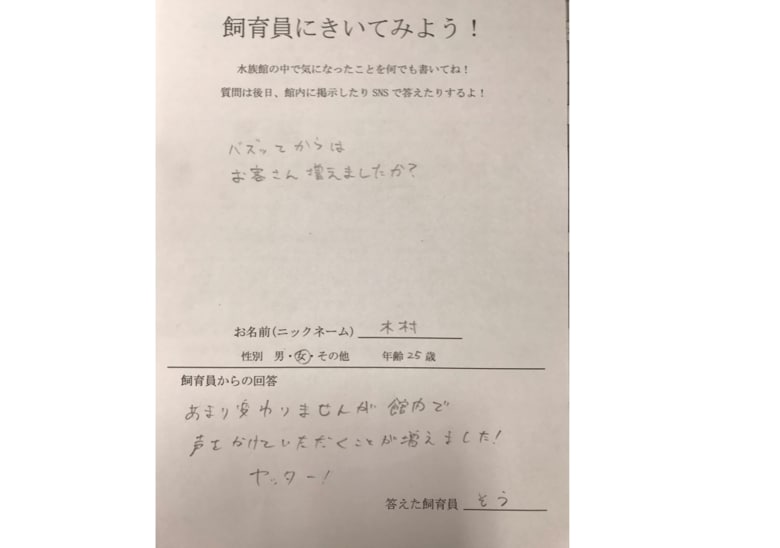 飼育員にきいてみよう！
水族館の中で気になったことを何でも書いてね！
質問は後日、館内に掲示したりSNSで答えたりするよ！
バズってからは
お客さん増えましたか？
お名前(ニックネーム) 木村
性別 男・女・その他 年齢 25 歳
飼育員からの回答
あまり変わりませんが館内で
声をかけていただくことが増えました！
ヤッター！
答えた飼育員 そう